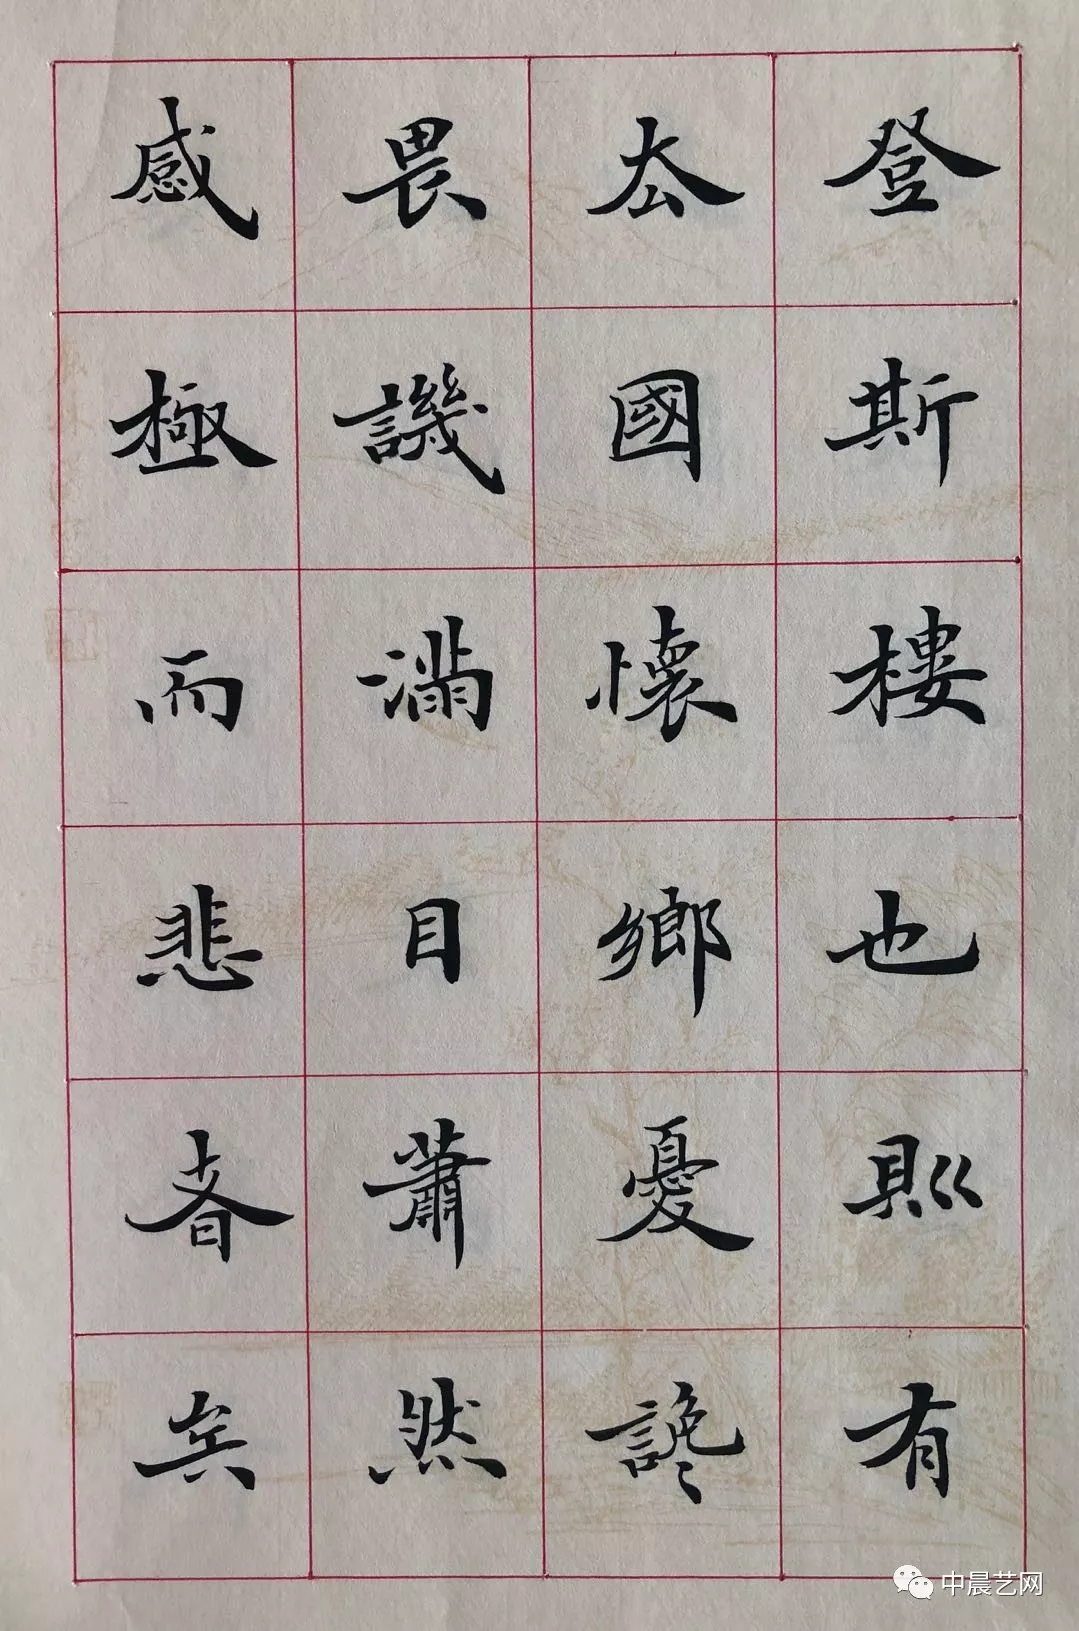 登斯樓也則有
去國懷鄉憂讒
畏譏滿目蕭然
感極而悲者矣
中晨艺网